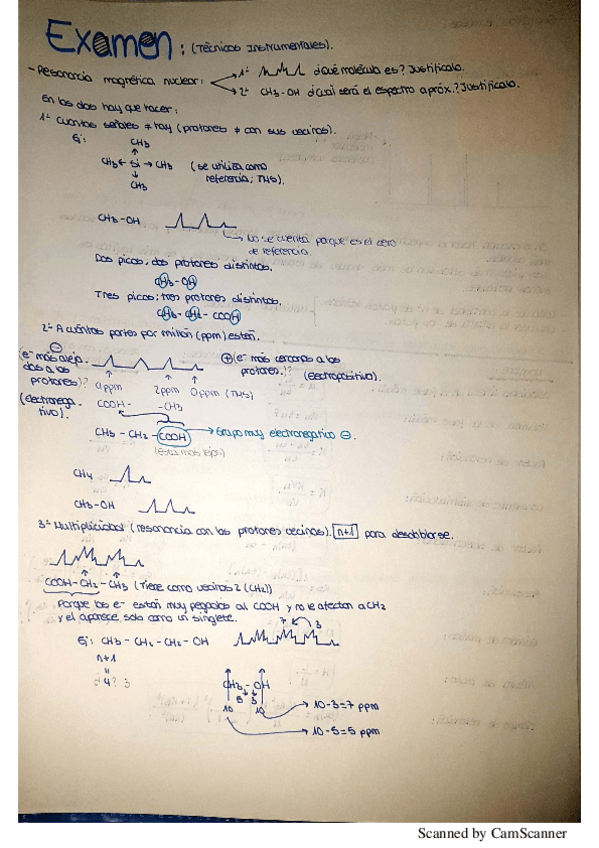 Examen: (Técnicas Instrumentales).
- Resonancia magnética nuclear: 1º ¿Qué molécula es? Justifícalo.
2º CH3-OH ¿Cuál será el espectro apróx.? Justifícalo.
En los dos hay que hacer:
1º Cuántas señales ≠ hay (protones ≠ con sus vecinos).
Ej: CH3
CH3 ← Si → CH3 (se utiliza como
referencia; TMS).
CH3
CH3-OH
No se cuenta porque es el cero
de referencia.
Dos picos; dos protones distintos.
CH3-OH
Tres picos; tres protones distintos.
CH3-CH2-COOH
2º A cuántas partes por millón (ppm) están.
⊖ (e⁻ más aleja-
dos a los
protones)?
(electronega-
tivo).
9ppm 2ppm 0ppm (TMS)
COOH- -CH3
⊕ (e⁻ más cercanos a los
protones)?
(electropositivo).
CH3-CH2-COOH → Grupo muy electronegativo ⊖
(está más lejos)
CH4
CH3-OH
3º Multiplicidad (resonancia con los protones vecinos). n+1 para desdoblarse.
COOH-CH2-CH3 (Tiene como vecinos 2 (CH2))
Porque los e⁻ están muy pegados al COOH y no le afectan a CH2
y él aparece solo como un singlete.
Ej: CH3-CH2-CH2-OH
7 3
n+1
=
¿4? 3
CH3-OH
5 3
10 10
10-3=7 ppm
10-5=5 ppm
Scanned by CamScanner